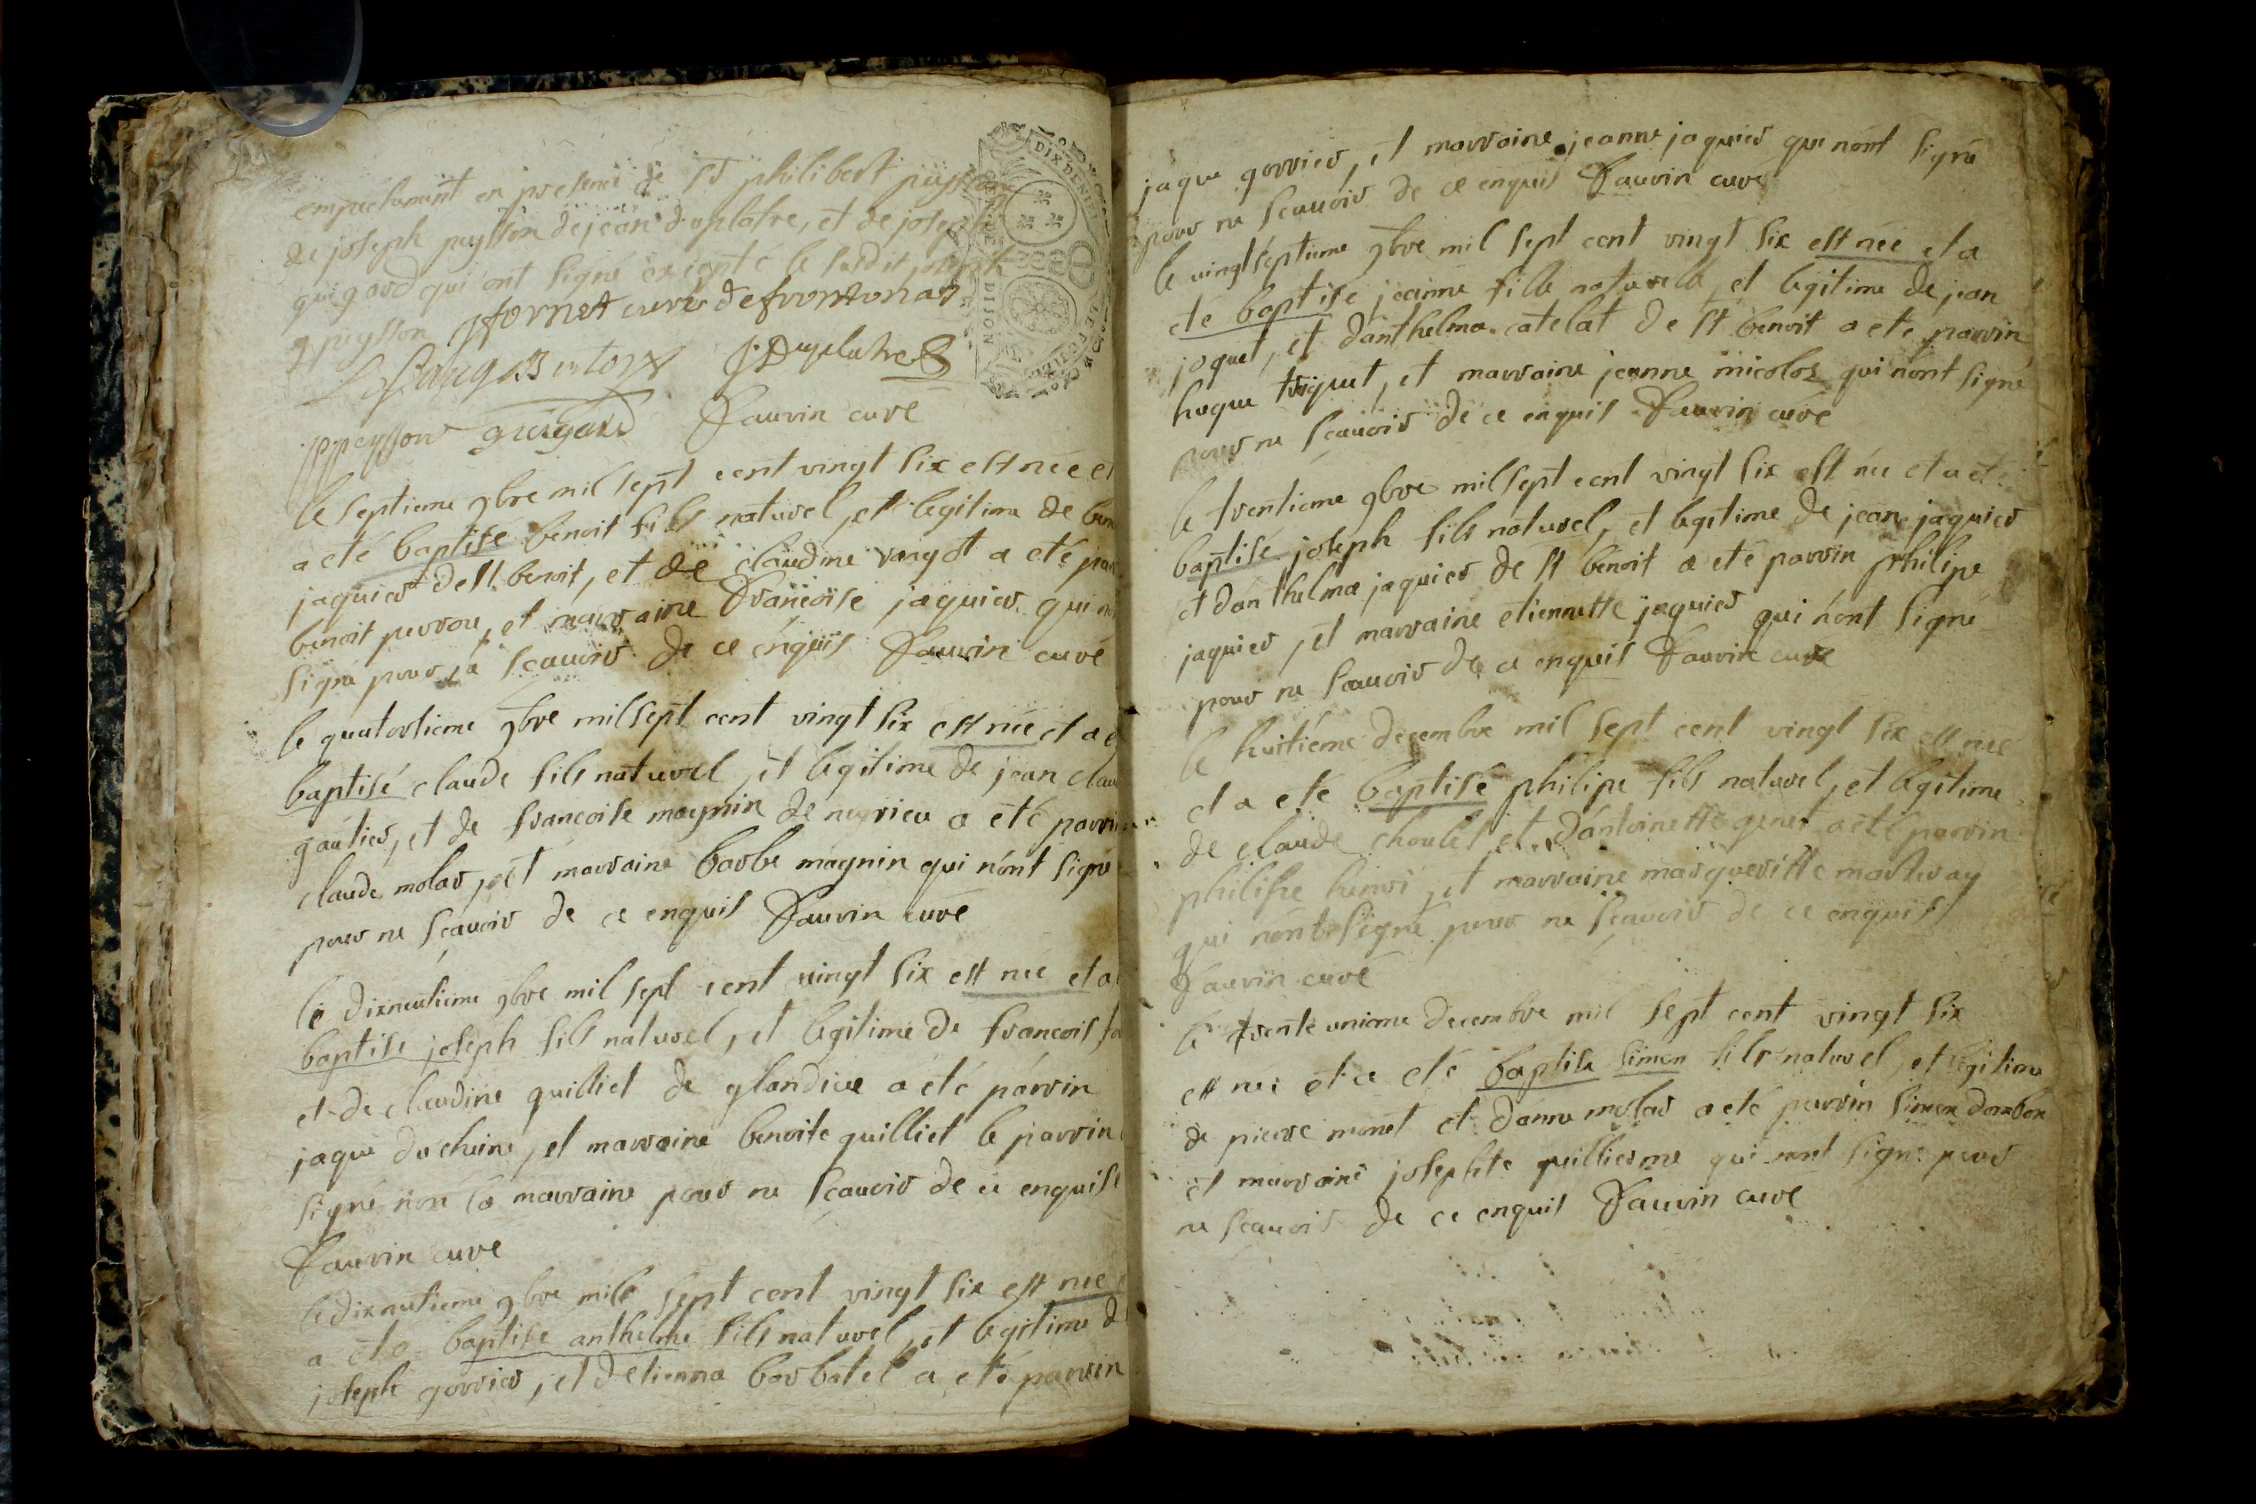 empechement en presence de Sr philibert peysson
de joseph peysson de jean duplatre, et de joseph
guigard qui ont signé excepté le susdit joseph
peysson pfornet curé de frontonas
J. Duplatre
ppeysson guigard Fauvin curé
le septieme 9bre mil sept cent vingt six est née et
a eté baptisé benoit fils naturel, et legitime de ben
jaquier de st benoit, et de claudine vangot a eté par
benoit perrou, et marraine francoise jaquier qui n
signé pour ne scauoir de ce enquis Fauvin curé
le quatorsieme 9bre mil sept cent vingt six est née et a e
baptisé claude fils naturel, et legitime de jean clau
gautier, et de francoise magnin de neyrieu a été parrin
claude molar, et marraine barbe magnin qui n'ont signé
pour ne scauoir de ce enquis Fauvin curé
le dixneufieme 9bre mil sept cent vingt six est née et a
baptise joseph fils naturel, et legitime de francois
et de claudine quilliet de glandieu a eté parrin
jaque du chene, et marraine benoite quilliet le parrin
signé non la marraine pour ne scauoir de ce enquise
Fauvin curé
le dixneufieme 9bre mile sept cent vingt six est née
a eté baptise anthelme fils naturel, et legitime d
joseph gorrier, et d'etienna barbatel a eté parrin
jaque gorrier, et marraine jeanne jaquier qui n'ont signé
pour ne scauoir de ce enquis Fauvin curé
le vingtseptieme 9bre mil sept cent vingt six est née et a
eté baptise jeanne fille naturelle, et legitime de jean
joquet, et d'anthelma catelat de st benoit a eté parrin
hugue triquet, et marraine jeanne micoloz qui n'ont signé
pour ne scauoir de ce enquis Fauvin curé
le trentieme 9bre mil sept cent vingt six est née et a eté
baptisé joseph fils naturel, et legitime de jean jaquier
et d'anthelma jaquier de st benoit a eté parrin philipe
jaquier, et marraine etiennette jaquier qui n'ont signé
pour ne scauoir de ce enquis Fauvin curé
le huitieme decembre mil sept cent vingt six est née
et a eté baptisé philipe fils naturel, et legitime
de claude choulet, et d'antoinette genet a eté parrin
philipe henri, et marraine margueritte marteray
qui n'ont signé pour ne scauoir de ce enquis
Fauvin curé
le trente unieme decembre mil sept cent vingt six
est née et a eté baptise simon fils naturel, et legitime
de pierre monet et d'anne molar a eté parrin simon dambon
et marraine josephte guillierme qui nont signé pour
ne scauoir de ce enquis Fauvin curé
DIX DENIERS
DIJON